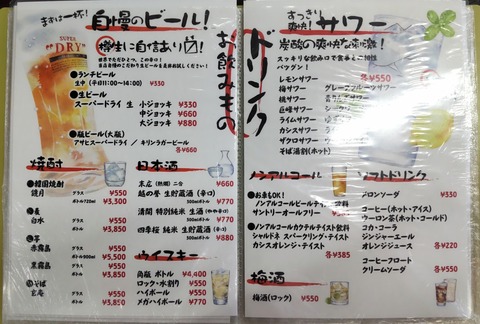 まずは一杯!
自慢のビール!
樽生に自信あり!
SUPER
"DRY"
世界でただひとつ、この辛口!
●ランチビール
生中(平日11:00~14:00) ¥330
●生ビール
スーパードライ 生 小ジョッキ ¥330
中ジョッキ ¥660
大ジョッキ ¥880
●瓶ビール(大瓶)
アサヒスーパードライ / キリンラガービール
各¥660
焼酎
●韓国焼酎
鏡月 グラス ¥550
ボトル720ml ¥3,300
●麦
白水 グラス ¥550
ボトル ¥3,850
●芋
赤霧島 グラス ¥550
ボトル900ml ¥5,500
黒霧島 グラス ¥550
ボトル ¥3,850
●そば
玄庵 グラス ¥550
ボトル ¥3,850
日本酒
末広(熱燗)二合 ¥660
越の誉 生貯蔵酒(辛口)
300mlボトル ¥770
清開 特別純米 生酒(やや辛口)
300mlボトル ¥770
四季桜 純米 生貯蔵酒(辛口)
300mlボトル ¥880
ウイスキー
角瓶 ボトル ¥4,400
ロック・水割り ¥550
ハイボール ¥550
メガハイボール ¥770
お飲みもの
ドリンク
すっきり爽快!
サワー
炭酸の爽快な刺激!
スッキリな飲み口で食事との相性
バツグン!
各¥550
レモンサワー
梅サワー グレープフルーツサワー
桃サワー
巨峰サワー
ライムサワー
カシスサワー
ザクロサワー
そば湯割(ホット)
ノンアルコール
●お車もOK!
ノンアルコールビールテイスト飲料
サントリーオールフリー
●ノンアルコールカクテルテイスト飲料
シャルドネ スパークリング・テイスト
カシスオレンジ・テイスト
各¥385
梅酒
梅酒(ロック) ¥550
ソフトドリンク
メロンソーダ ¥330
コーヒー(ホット・アイス)
ウーロン茶(ホット・コールド)
コカ・コーラ
ジンジャーエール
オレンジジュース 各¥220
コーヒーフロート
クリームソーダ 各¥550